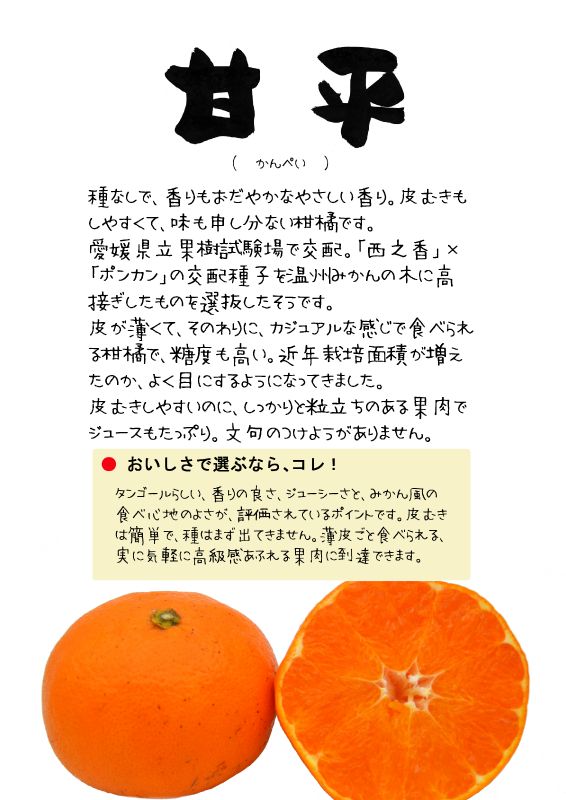 甘平
(かんぺい)
種なしで、香りもおだやかなやさしい香り。皮むきも
しやすくて、味も申し分ない柑橘です。
愛媛県立果樹試験場で交配。「西之香」×
「ポンカン」の交配種子を温州みかんの木に高
接ぎしたものを選抜したそうです。
皮が薄くて、そのわりに、カジュアルな感じで食べられ
る柑橘で、糖度も高い。近年栽培面積が増え
たのか、よく目にするようになってきました。
皮むきしやすいのに、しっかりと粒立ちのある果肉で
ジュースもたっぷり。文句のつけようがありません。
● おいしさで選ぶなら、コレ!
タンゴールらしい、香りの良さ、ジューシーさと、みかん風の
食べ心地のよさが、評価されているポイントです。皮むき
は簡単で、種はまず出てきません。薄皮ごと食べられる、
実に気軽に高級感あふれる果肉に到達できます。